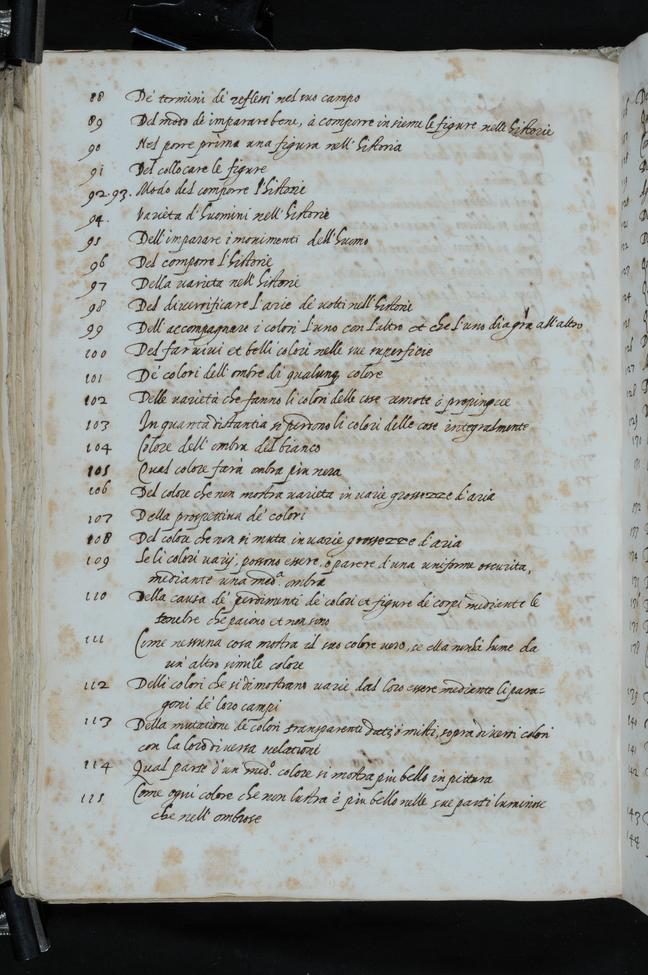 88 De' termini de' reflessi nel suo campo
89 Del modo de imparare bene, à comporre insieme le figure nelle historie
90 Nel porre prima una figura nell' historia
91 Del collocare le figure
92.93. Modo del comporre l'historie
94. Varieta d'huomini nell' historie
95 Dell' imparare i movimenti dell' huomo
96 Del comporre l'historie
97 Della varieta nell' historie
98 Del diversificare l'arie de' volti nell' historie
99 Dell' accompagnare i colori l'uno con l'altro et che l'uno dia grã all' altro
100 Del far vivi et belli colori nelle sue superficie
101 De' colori dell' ombre di qualunq colore
102 Delle varietà che fanno li colori delle cose remote ò propinque
103 In quanta distantia si perdono li colori delle cose integralmente
104 Colore dell' ombra del bianco
105 Qual colore farà ombra piu nera
106 Del colore che non mostra varieta in varie grossezze d'aria
107 Della prospettiva de' colori
108 Del colore che non si muta in varie grossezze d'aria
109 Se li colori varij, possono essere, o parere d'una uniforme oscurita,
mediante una medª. ombra
110 Della causa de' perdimenti de' colori et figure de' corpi mediante le
tenebre che paiono et non sono
111 Come nessuna cosa mostra il suo colore vero, se ella non hà lume da
un' altro simile colore
112 Delli colori che si dimostrano varie dal loro essere mediante li para=
goni de' loro campi
113 Della mutatione de' colori transparenti dati, ò misti, sopra diversi colori
con la loro diversa relationi
114 Qual parte d'un medº. colore si mostra piu bello in pittura
115 Come ogni colore che non lustra è piu bello nelle sue parti luminose
che nell' ombrose